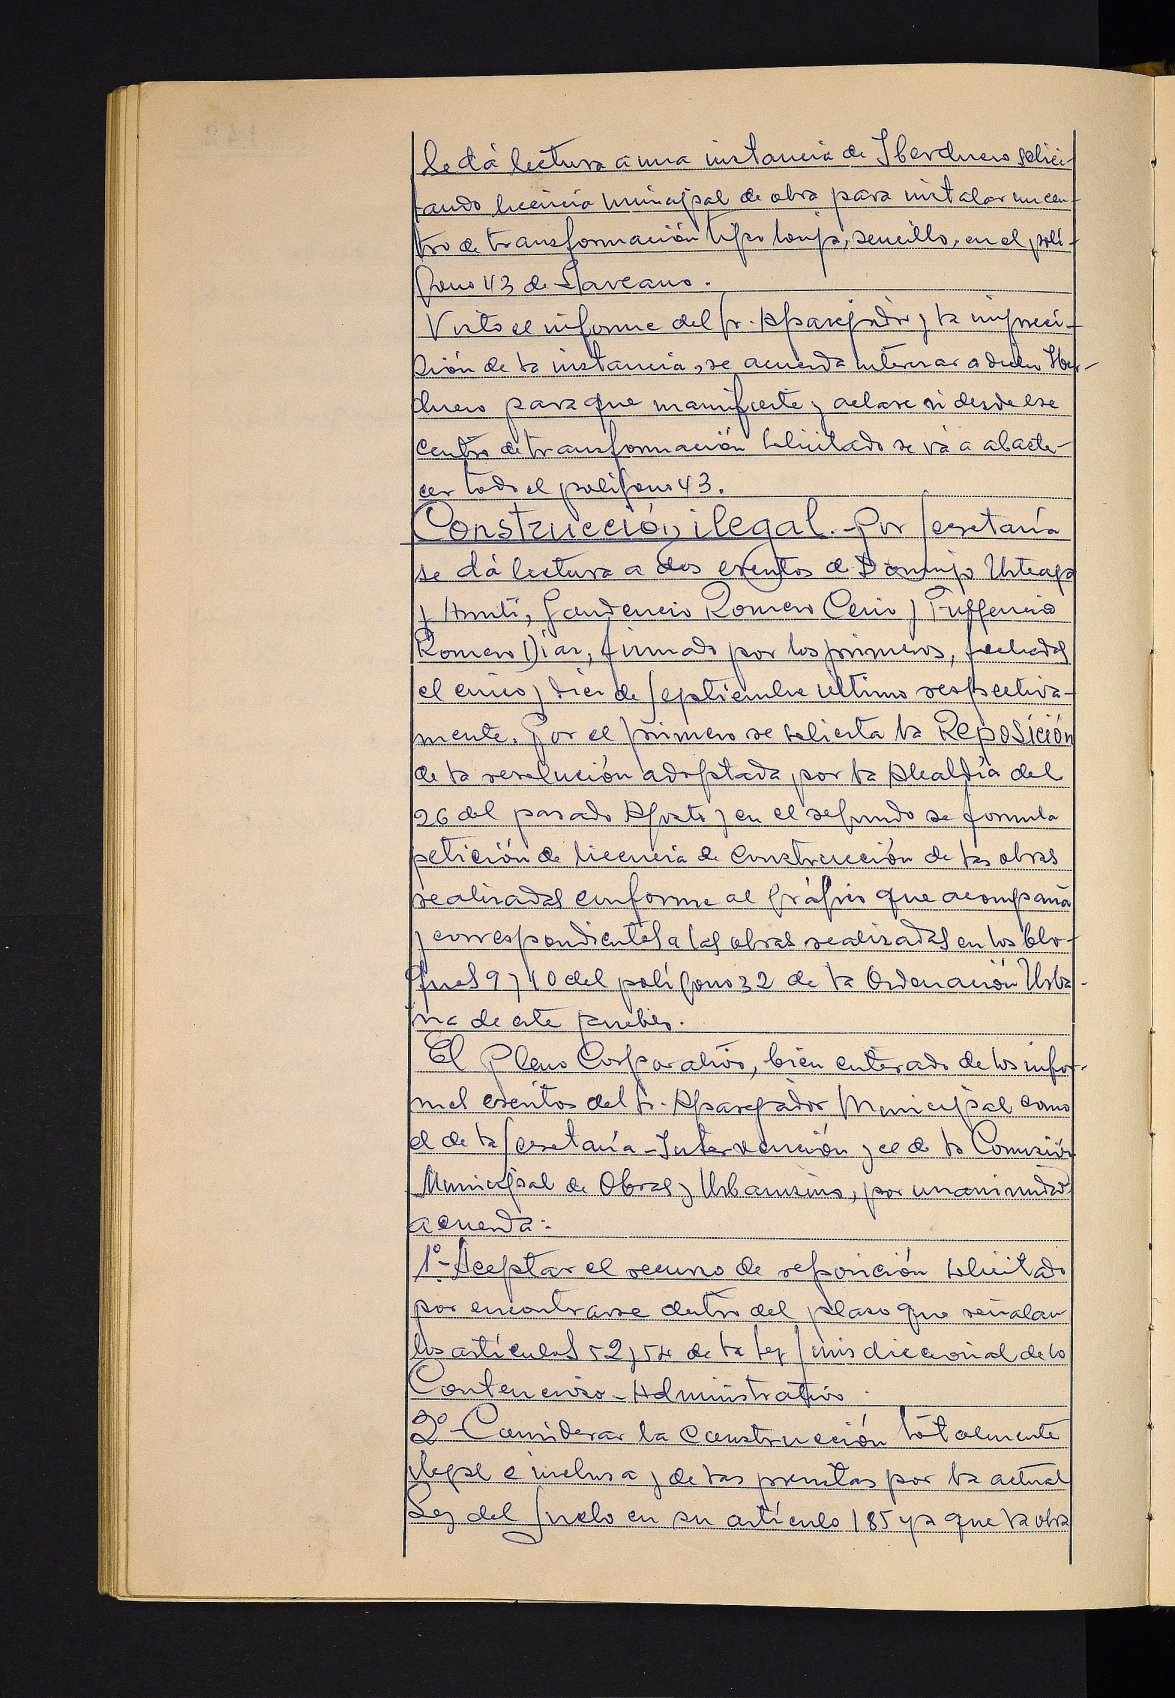 Se dá lectura a una instancia de Iberduero solici-
tando licencia municipal de obra para instalar un cen-
tro de transformación tipo lonja, sencillo, en el polí-
gono 43 de Larreano.
Visto el informe del Sr. Aparejador y la impreci-
sión de la instancia, se acuerda interesar a dicha Iber-
duero para que manifieste y aclare si desde ese
centro de transformación solicitado se vá a abaste-
cer todo el polígono 43.
Construcción ilegal.- Por Secretaría
se dá lectura a dos escritos de Domingo Urteaga
y Amuti, Gaudencio Romero Cerio y Fulgencio
Romero Diaz, firmado por los primeros, fechados
el cinco y diez de Septiembre último respectiva-
mente. Por el primero se solicita la Reposición
de la resolución adoptada por la Alcaldía del
26 del pasado Agosto y en el segundo se formula
petición de licencia de construcción de las obras
realizadas conforme al gráfico que acompaña
y correspondientes a las obras realizadas en los blo-
ques 9 y 10 del polígono 32 de la Ordenación Urba-
na de este pueblo.
El Pleno Corporativo, bien enterado de los infor-
mes escritos del Sr. Aparejador Municipal como
el de la Secretaría-Intervención y el de la Comisión
Municipal de Obras y Urbanismo, por unanimidad
acuerda:
1º- Aceptar el recurso de reposición solicitado
por encontrarse dentro del plazo que señalan
los artículos 52 y 54 de la Ley Jurisdiccional de lo
Contencioso-Administrativo.
2º- Considerar la construcción totalmente
ilegal e inclusa y de las previstas por la actual
Ley del Suelo en su artículo 185 ya que la obra